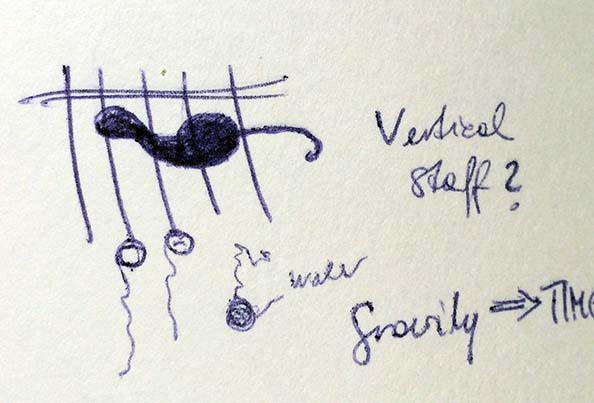 Vertical
staff?
water
Gravity ⇒ TIME